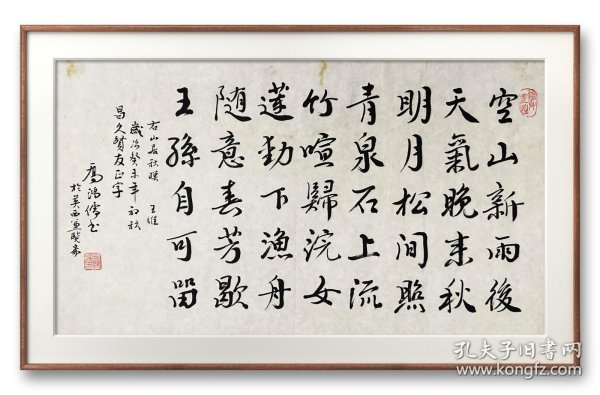 空山新雨後
天氣晚来秋
明月松間照
青泉石上流
竹喧歸浣女
蓮動下漁舟
随意春芳歇
王孫自可留
右山居秋暝 王維
歲次癸未年初秋
昌久賢友正字
鴻儒书
孔夫子旧书网
www.kongfz.com